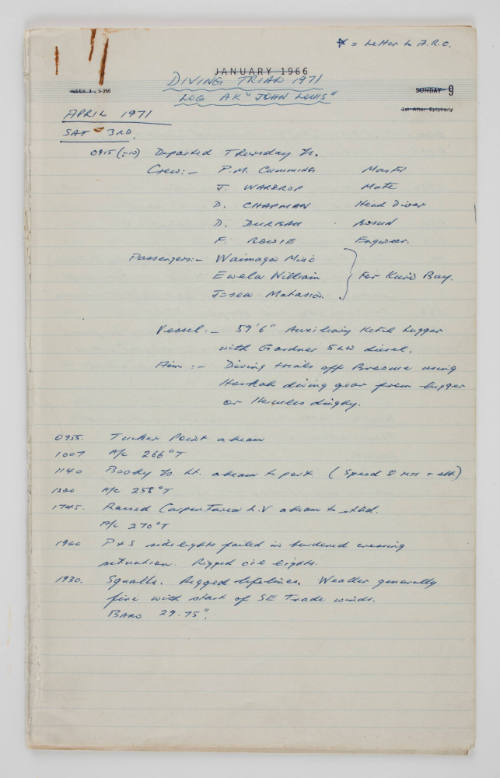 * = Letter to A.R.C.
JANUARY 1966
DIVING TRIAD 1971
LOG AK "JOHN LOUIS"
SUNDAY 9
1st After Epiphany
APRIL 1971
SAT 3RD
0915 Departed Thursday Is.
Crew:- P.M. Cummings Master
J. WARDROP Mate
D. CHAPMAN Head Diver
D. DURBAH Bosun
F. BOWIE Engineer
Passengers:- Waimaga
Ewela William
Josea For Kuri Bay.
Vessel:- 59'6" Auxiliary Ketch Lugger
with Gardner 5LW diesel.
Aim:- Diving trials off Broome using
Hookah diving gear from lugger
or Hercules dinghy.
0955 Tucker Point abeam
1007 A/c 266°T
1140 Booby Is. Lt. abeam to port (Speed 8 kts
1200 A/c 258°T
1745. Raised Carpentaria L.V abeam to stbd.
A/c 270°T
1900 P&S sidelights failed in burdened crossing
situation. Rigged oil lights.
1930. Squalls. Rigged lifelines. Weather generally
fine with start of SE Trade winds.
BARO 29.75".